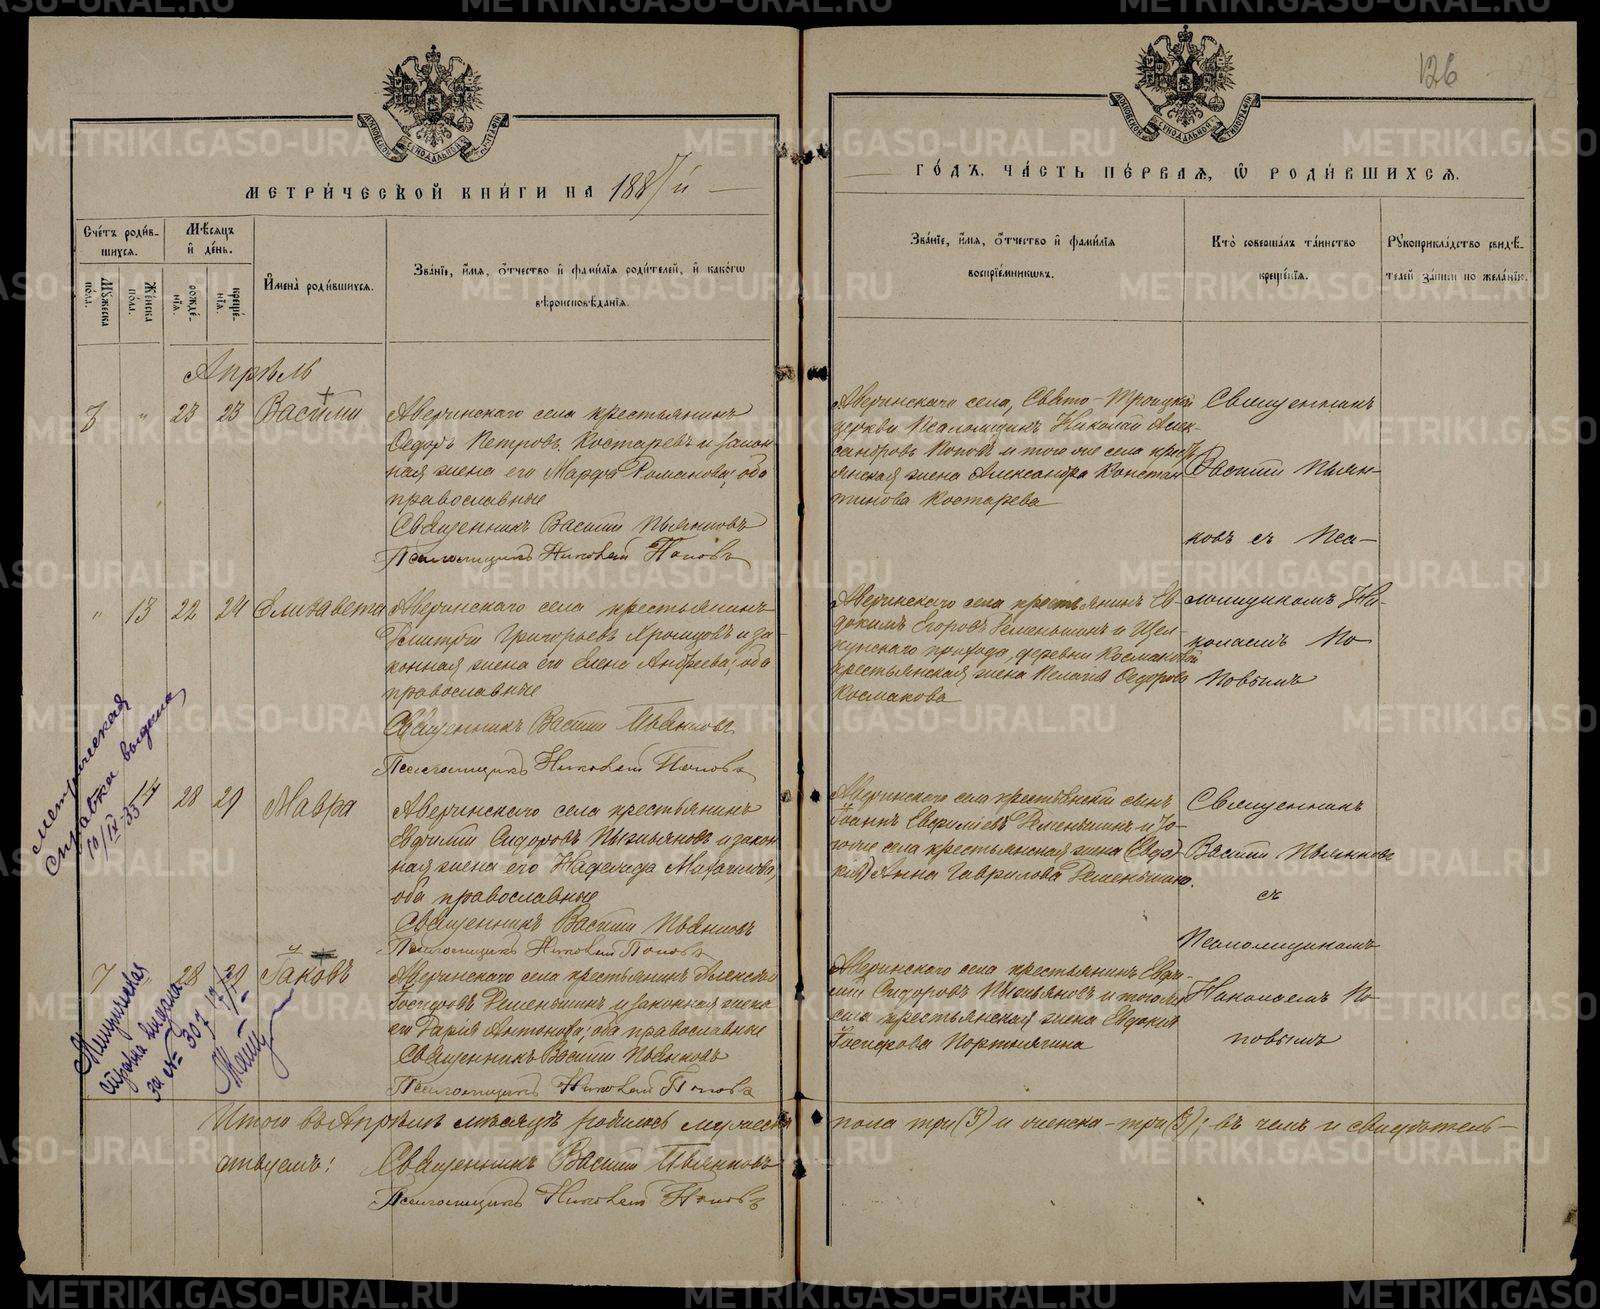 126
МЕТРИ́ЧЕСКОЙ КНИ́ГИ НА 1887й
ГО́ДЪ, ЧА́СТЬ ПЕ́РВАЯ, Ѿ РОДИ́ВШИХСЯ.
Сче́тъ роди́в-
шихся.
Мѣ́сяцъ
и҆ де́нь.
Мꙋ́жеска
пола.
Же́нска
пола.
рожде́-
нїя.
креще́-
нїя.
И҆мена̀ роди́вшихся.
Зва́нїе, и҆́мя, ѻ҆́тчество и҆ фами́лїя роди́телей, и҆ како́гѡ
вѣроисповѣ́данїя.
Зва́нїе, и҆́мя, ѻ҆́тчество и҆ фами́лїя
воспрїе́мниковъ.
Кто̀ соверша́лъ та́инство
креще́нїя.
Рꙋкоприкла́дство свидѣ́-
телей за́писи по жела́нїю.
Апрѣль
" 23 23 Василій
Аверинскаго села крестьянинъ
Ѳедоръ Петровъ Костаревъ и закон-
ная жена его Марфа Романова; оба
православные
Священникъ Василій Пьянковъ
Псаломщикъ Николай Поповъ
Аверинскаго села, Свято-Троицкой
церкви Псаломщикъ Николай Алек-
сандровъ Поповъ и того же села кресть-
янская жена Александра Констан-
тинова Костарева
Священникъ
Василій Пьян-
ковъ съ Пса-
" 13 22 24 Елизавета
Аверинскаго села крестьянинъ
Димитрій Григорьевъ Хромцовъ и за-
конная жена его Елена Андреева; оба
православные
Священникъ Василій Пьянковъ
Псаломщикъ Николай Поповъ
Аверинскаго села крестьянинъ Ев-
докимъ Егоровъ Деменьшинъ и Щел-
кунскаго прихода, деревни Космаковой
крестьянская жена Пелагія Ѳедорова
Космакова
ломщикомъ Ни-
колаемъ По-
повымъ
Метрическая
справка выдана
10/IX-35
14 28 29 Мавра
Аверинскаго села крестьянинъ
Евфимій Сидоровъ Пызьяновъ и закон-
ная жена его Надежда Михаилова,
оба православные
Священникъ Василій Пьянковъ
Псаломщикъ Николай Поповъ
Аверинскаго села крестьянскій сынъ
Іоаннъ Деменьшинъ и то-
гоже села крестьянская жена
Анна Гаврилова Деменьшина.
Священникъ
Василій Пьянковъ
съ
Псаломщикомъ
28 29 Іаковъ
Аверинскаго села крестьянинъ Алексѣй
Деменьшинъ и законная жена
его Дарія Антонова; оба православные
Священникъ Василій Пьянковъ
Псаломщикъ Николай Поповъ
Аверинскаго села крестьянинъ Евфи-
мій Сидоровъ Пызьяновъ и тогоже
села крестьянская жена Евдокія
Портнягина
Николаемъ По-
повымъ
выдана
за № 307
Итого въ Апрѣлѣ мѣсяцѣ родилось мужеска пола три (3) и женска - три (3); въ чемъ и свидѣтель-
ствуемъ:
Священникъ Василій Пьянковъ
Псаломщикъ Николай Поповъ
METRIKI.GASO-URAL.RU